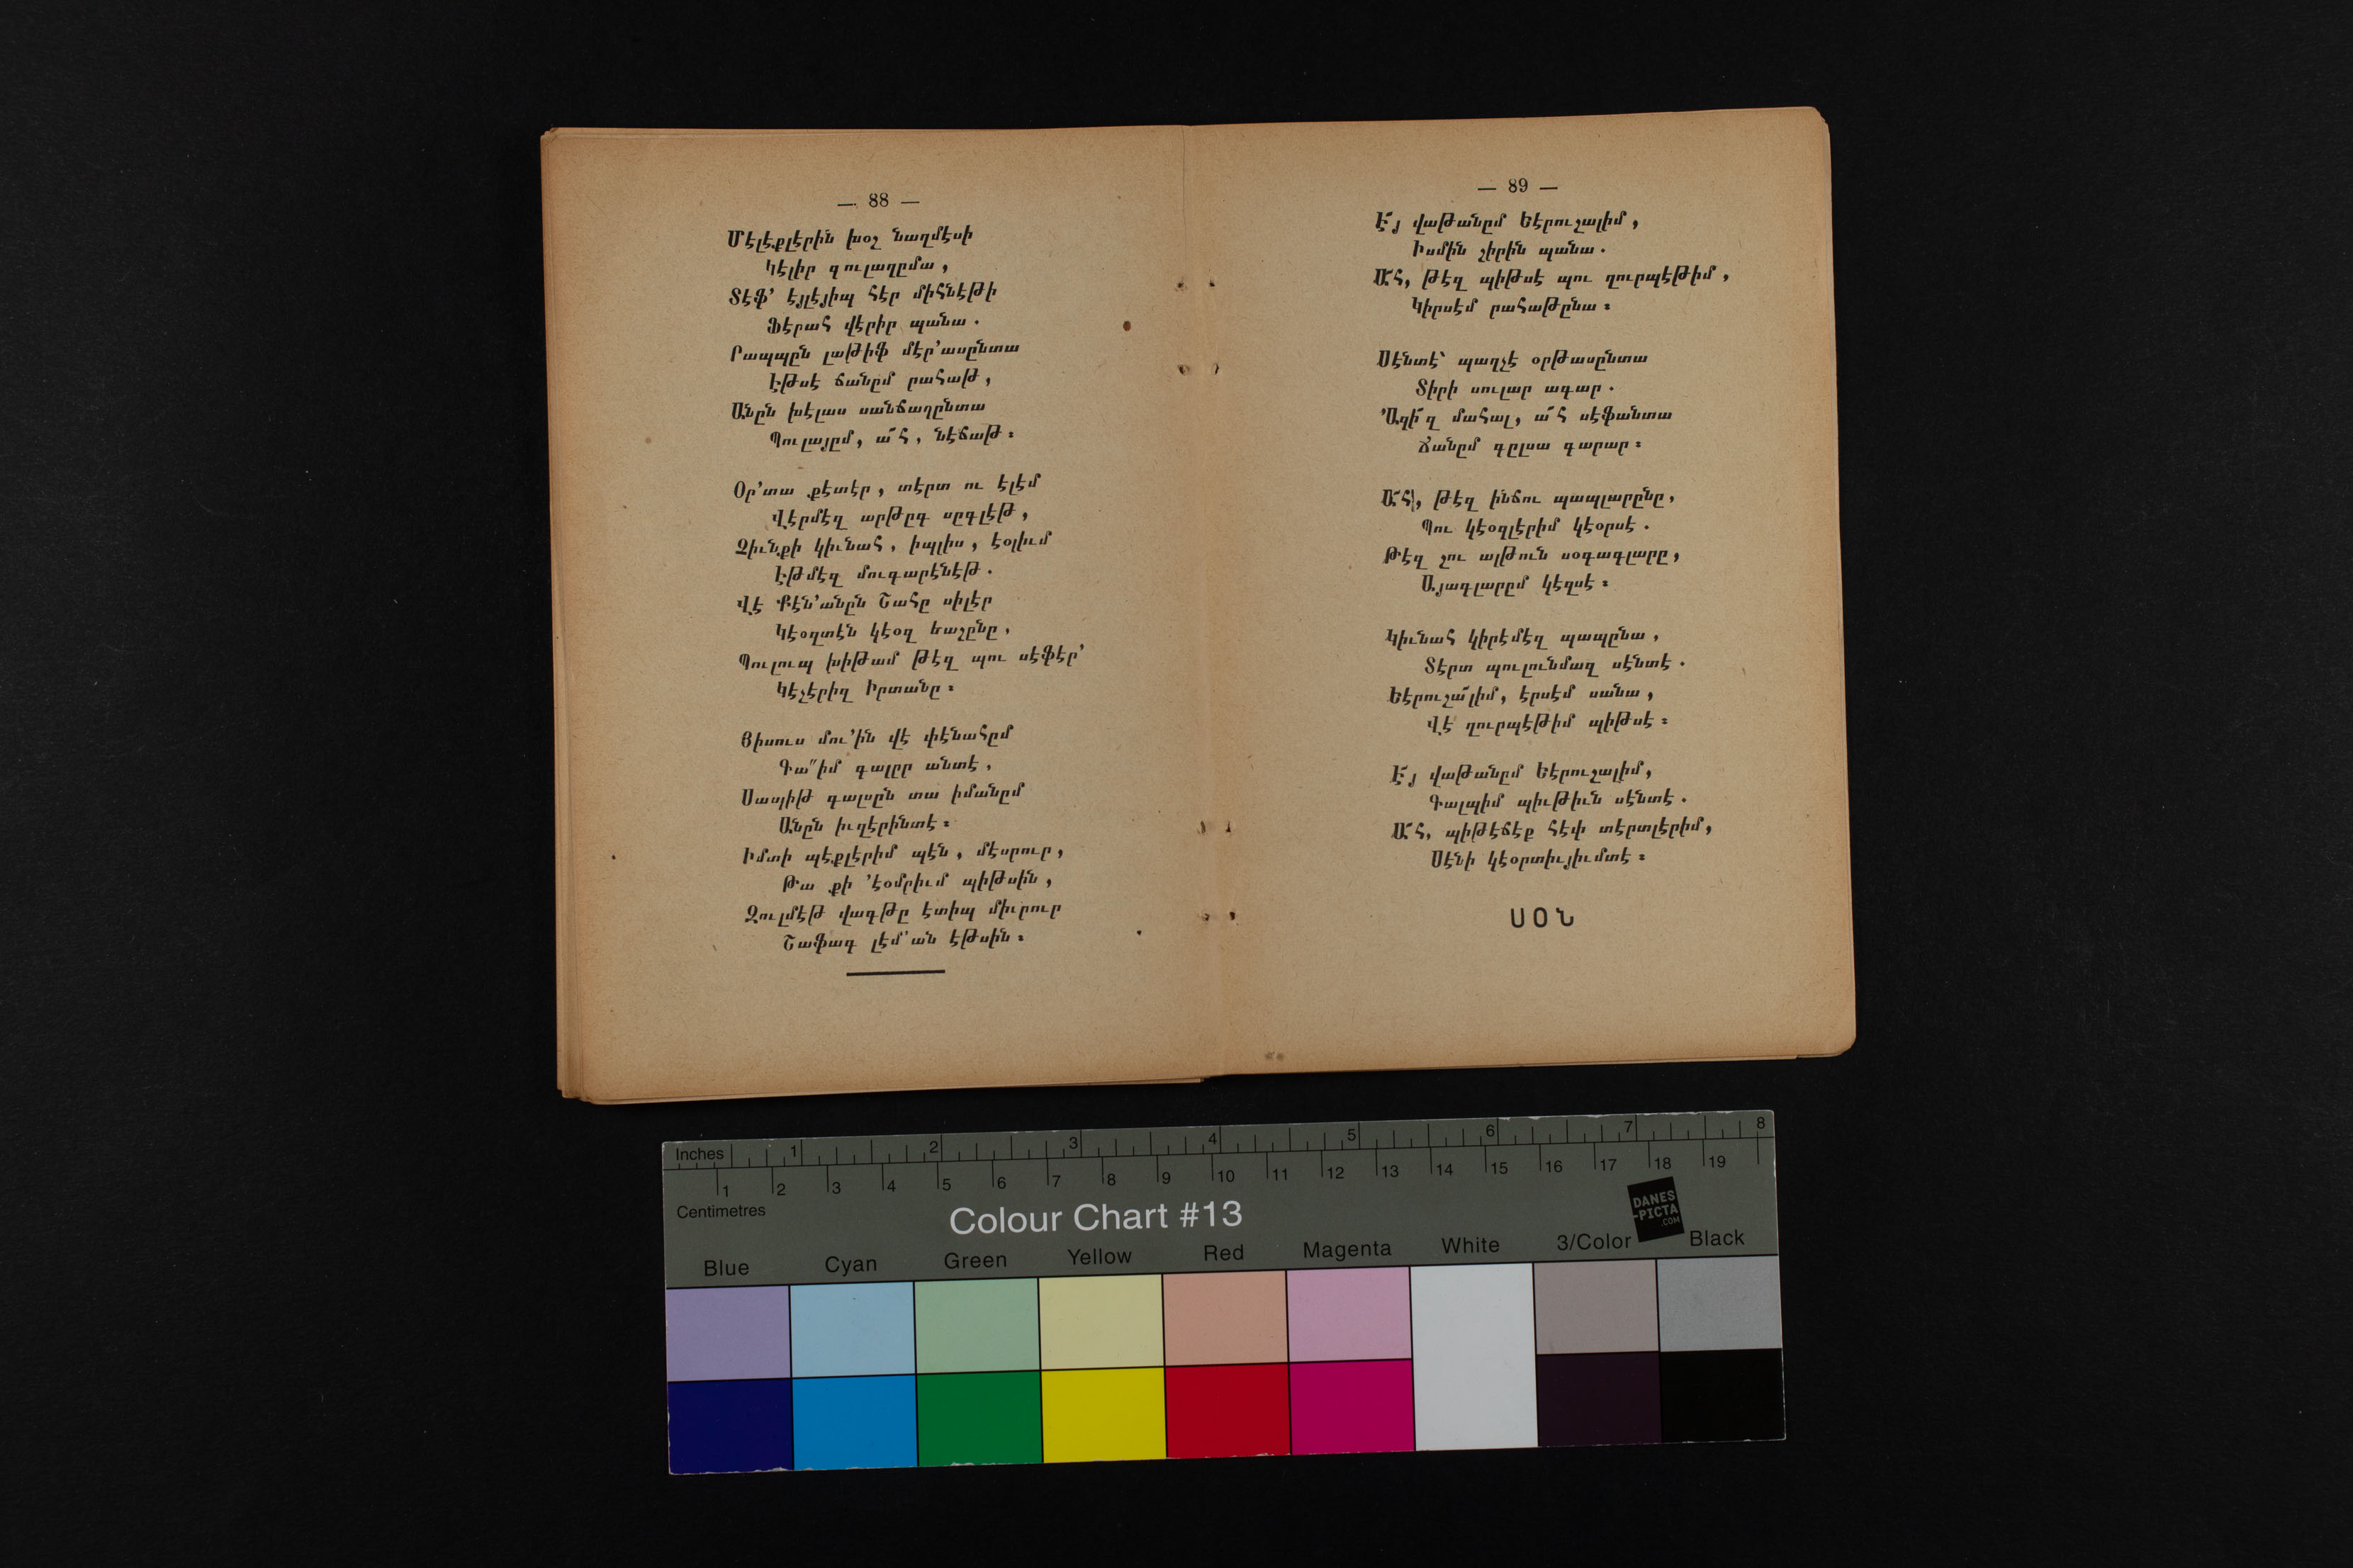 — 88 —
Մէլէքլէրին խօշ նաղմէսի
Կէլիր գուլաղըմա,
Տէֆ՚ էյլէյիպ հէր միհնէթի
Ֆէրահ վէրիր պանա.
Րապպըն լաթիֆ մէր՚ասընտա
Էթսէ ճանըմ րահաթ,
Անըն խէլաս սանճաղընտա
Պուլայըմ, ա՜հ, նէճաթ։
Օր՚տա քէտէր, տէրտ ու էլէմ
Վէրմէզ արթըգ սըգլէթ,
Չիւնքի կիւնահ, իպլիս, էօլիւմ
Էթմէզ մուգարէնէթ.
Վէ Քէն՚անըն Շահը սիլէր
Կէօզտէն կէօզ եաշընը,
Պուլուպ խիթամ թէզ պու սէֆէր՚
Կէչէրիզ Իրտանը։
Յիսուս մու՚ին վէ փէնահըմ
Գա՞իմ գալըր անտէ,
Սապիթ գալսըն տա իմանըմ
Անըն իւզէրինտէ։
Իմտի պէքլէրիմ պէն, մէսրուր,
Թա քի ՚էօմրիւմ պիթսին,
Զուլմէթ վագթը էտիպ միւրուր
Շաֆագ լէմ՚ան էթսին։
— 89 —
Է՜յ վաթանըմ Եէրուշալիմ,
Իսմին շիրին պանա.
Ա՜հ, թէզ պիթսէ պու ղուրպէթիմ,
Կիրսէմ րահաթընա։
Սէնտէ՝ պաղչէ օրթասընտա
Տիրի սուլար ագար.
՚Ազի՜զ մահալ, ա՜հ սէֆանտա
Ճանըմ գըլսա գարար։
Ա՜հ, թէզ ինճու պապլարընը,
Պու կէօզլէրիմ կէօրսէ.
Թէզ շու ալթուն սօգագլարը,
Այագլարըմ կէզսէ։
Կիւնահ կիրէմէզ պապընա,
Տէրտ պուլունմազ սէնտէ.
Եէրուշա՜լիմ, էրսէմ սանա,
Վէ ղուրպէթիմ պիթսէ։
Է՜յ վաթանըմ Եէրուշալիմ,
Գալպիմ պիւթիւն սէնտէ.
Ա՜հ, պիթէճէք հէփ տէրտլէրիմ,
Սէնի կէօրտիւյիւմտէ։
ՍՕՆ
Inches 1 2 3 4 5 6 7 8
1 2 3 4 5 6 7 8 9 10 11 12 13 14 15 16 17 18 19
Centimetres
Colour Chart #13
DANES
-PICTA
.COM
Blue Cyan Green Yellow Red Magenta White 3/Color Black